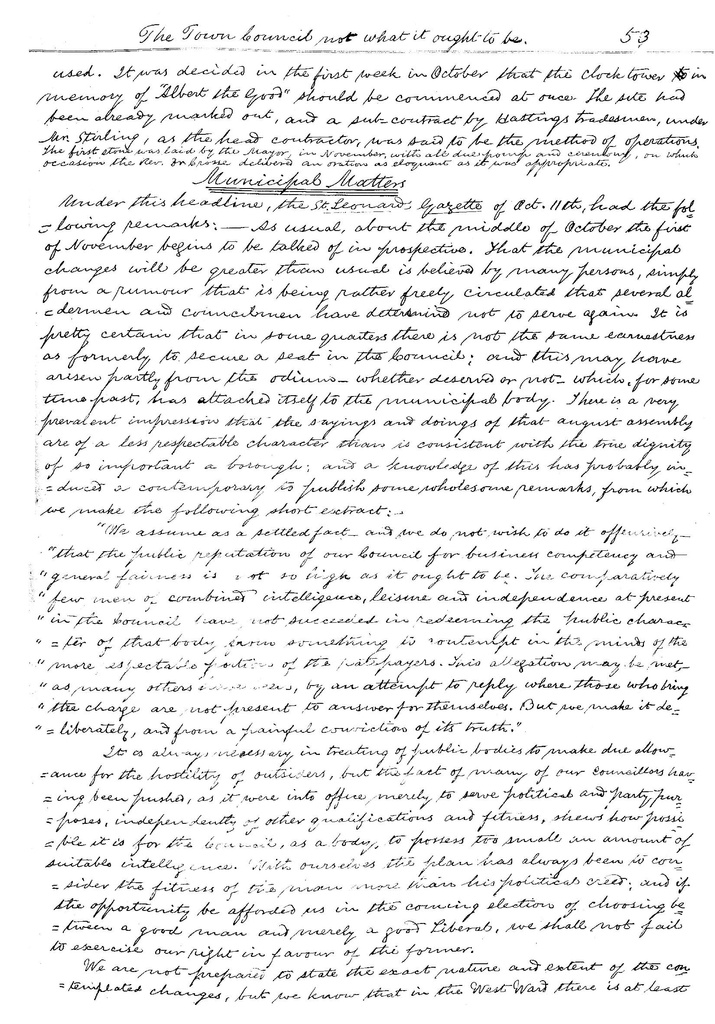 The Town Council not what it ought to be. 53
used. It was decided in the first week in October that the clock tower to in
memory of "Albert the Good" should be commenced at once. The site had
been already marked out, and a sub-contract by Hastings tradesmen, under
Mr. Stirling, as the head contractor, was said to be the method of operations.
The first stone was laid by the Mayor, in November, with all due pomp and ceremony, on which
occasion the Rev. Dr Crosse delivered an oration as eloquent as it was appropriate.
Municipal Matters
Under this headline, the St. Leonards Gazette of Oct. 11th, had the fol=
=lowing remarks:— As usual, about the middle of October the first
of November begins to be talked of in prospective. That the municipal
changes will be greater than usual is believed by many persons, simply
from a rumour that is being rather freely circulated that several al=
=dermen and councilmen have determind not to serve again. It is
pretty certain that in some quarters there is not the same earnestness
as formerly to secure a seat in the Council; and this may have
arisen partly from the odium— whether deserved or not— which, for some
time past, has attached itself to the municipal body. There is a very
prevalent impression that the sayings and doings of that august assembly
are of a less respectable character than is consistent with the true dignity
of so important a borough; and a knowledge of this has probably in=
=duced a contemporary to publish some wholesome remarks, from which
we make the following short extract:—
"We assume as a settled fact— and we do not wish to do it offensively—
"that the public reputation of our Council for business competency and
"general fairness is not so high as it ought to be. The comparatively
"few men of combined intelligence, leisure and independence at present
"in the Council have not succeeded in redeeming the public charac=
"=ter of that body from something like contempt in the minds of the
"more respectable portion of the ratepayers. This allegation may be met—
"as many others have been, by an attempt to reply where those who bring
"the charge are not present to answer for themselves. But we make it de=
"=liberately, and from a painful conviction of its truth."
It is always necessary, in treating of public bodies to make due allow=
=ance for the hostility of outsiders, but the fact of many of our councillors hav=
=ing been pushed, as it were into office merely to serve political and party pur=
=poses, independently of other qualifications and fitness, shews how possi=
=ble it is for the Council, as a body, to possess too small an amount of
suitable intelligence. With ourselves the plan has always been to con=
=sider the fitness of the man more than his political creed; and if
the opportunity be afforded us in the coming election of choosing be=
=tween a good man and merely a good Liberal, we shall not fail
to exercise our right in favour of the former.
We are not prepared to state the exact nature and extent of the con
=templated changes, but we know that in the West Ward there is at least